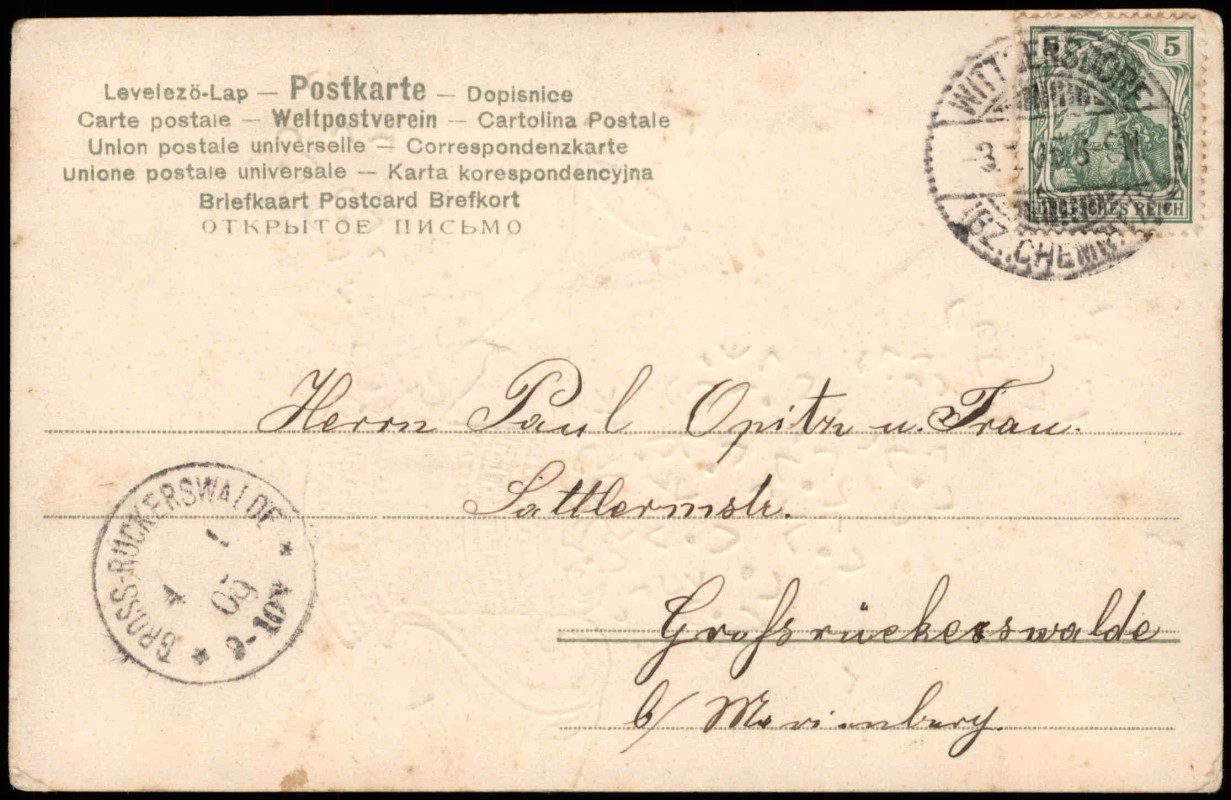 Levelezö-Lap — Postkarte — Dopisnice
Carte postale — Weltpostverein — Cartolina Postale
Union postale universelle — Correspondenzkarte
Unione postale universale — Karta korespondencyjna
Briefkaart Postcard Brefkort
ОТКРЫТОЕ ПИСЬМО
5
DEUTSCHES REICH
WITTGENSDORF
(BZ. CHEMNITZ)
Herrn Paul Opitz u. Frau.
Sattlermstr.
Großrückerswalde
b/ Marienberg.
GROSS-RÜCKERSWALDE
4 1
05
9-10V